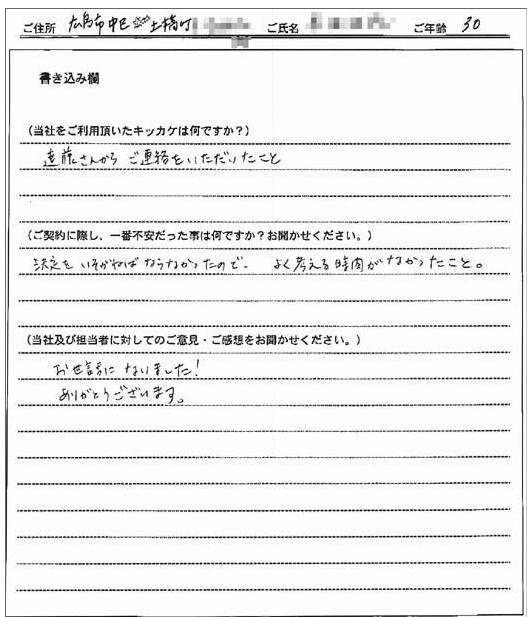 ご住所 広島市中区土橋町 ご氏名 ご年齢 30
書き込み欄
(当社をご利用頂いたキッカケは何ですか?)
遠藤さんから ご連絡をいただいたこと
(ご契約に際し、一番不安だった事は何ですか?お聞かせください。)
決定を いそがねば ならなかったので、 よく考える時間がなかったこと。
(当社及び担当者に対してのご意見・ご感想をお聞かせください。)
お世話に なりました!
ありがとうございます。